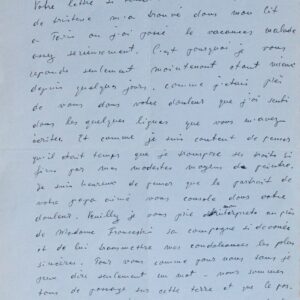 Votre lettre si
de tristesse m'a trouvé dans mon lit
à Paris où j'ai passé les vacances malade
assez serieusement. C'est pourquoi je vous
reponds seulement maintenant étant mieux
depuis quelques jours. comme j'etais près
de vous dans votre douleur que j'ai senti
dans les quelques lignes que vous m'avez
écrites. Et comme je suis content de penser
qu'il était temps que je transpose ses traits si
fins par mes modestes moyens de peintre.
Je suis heureux de penser que le portrait de
votre papa aimé vous console dans votre
douleur. Veuillez je vous prie interprète auprès
de Madame Franceschi sa compagne si devouée
et de lui transmettre mes condoléances les plus
sincères. Pour vous comme pour nous tous je
peux dire seulement un mot - nous sommes
tous de passage sur cette terre et que le pas-